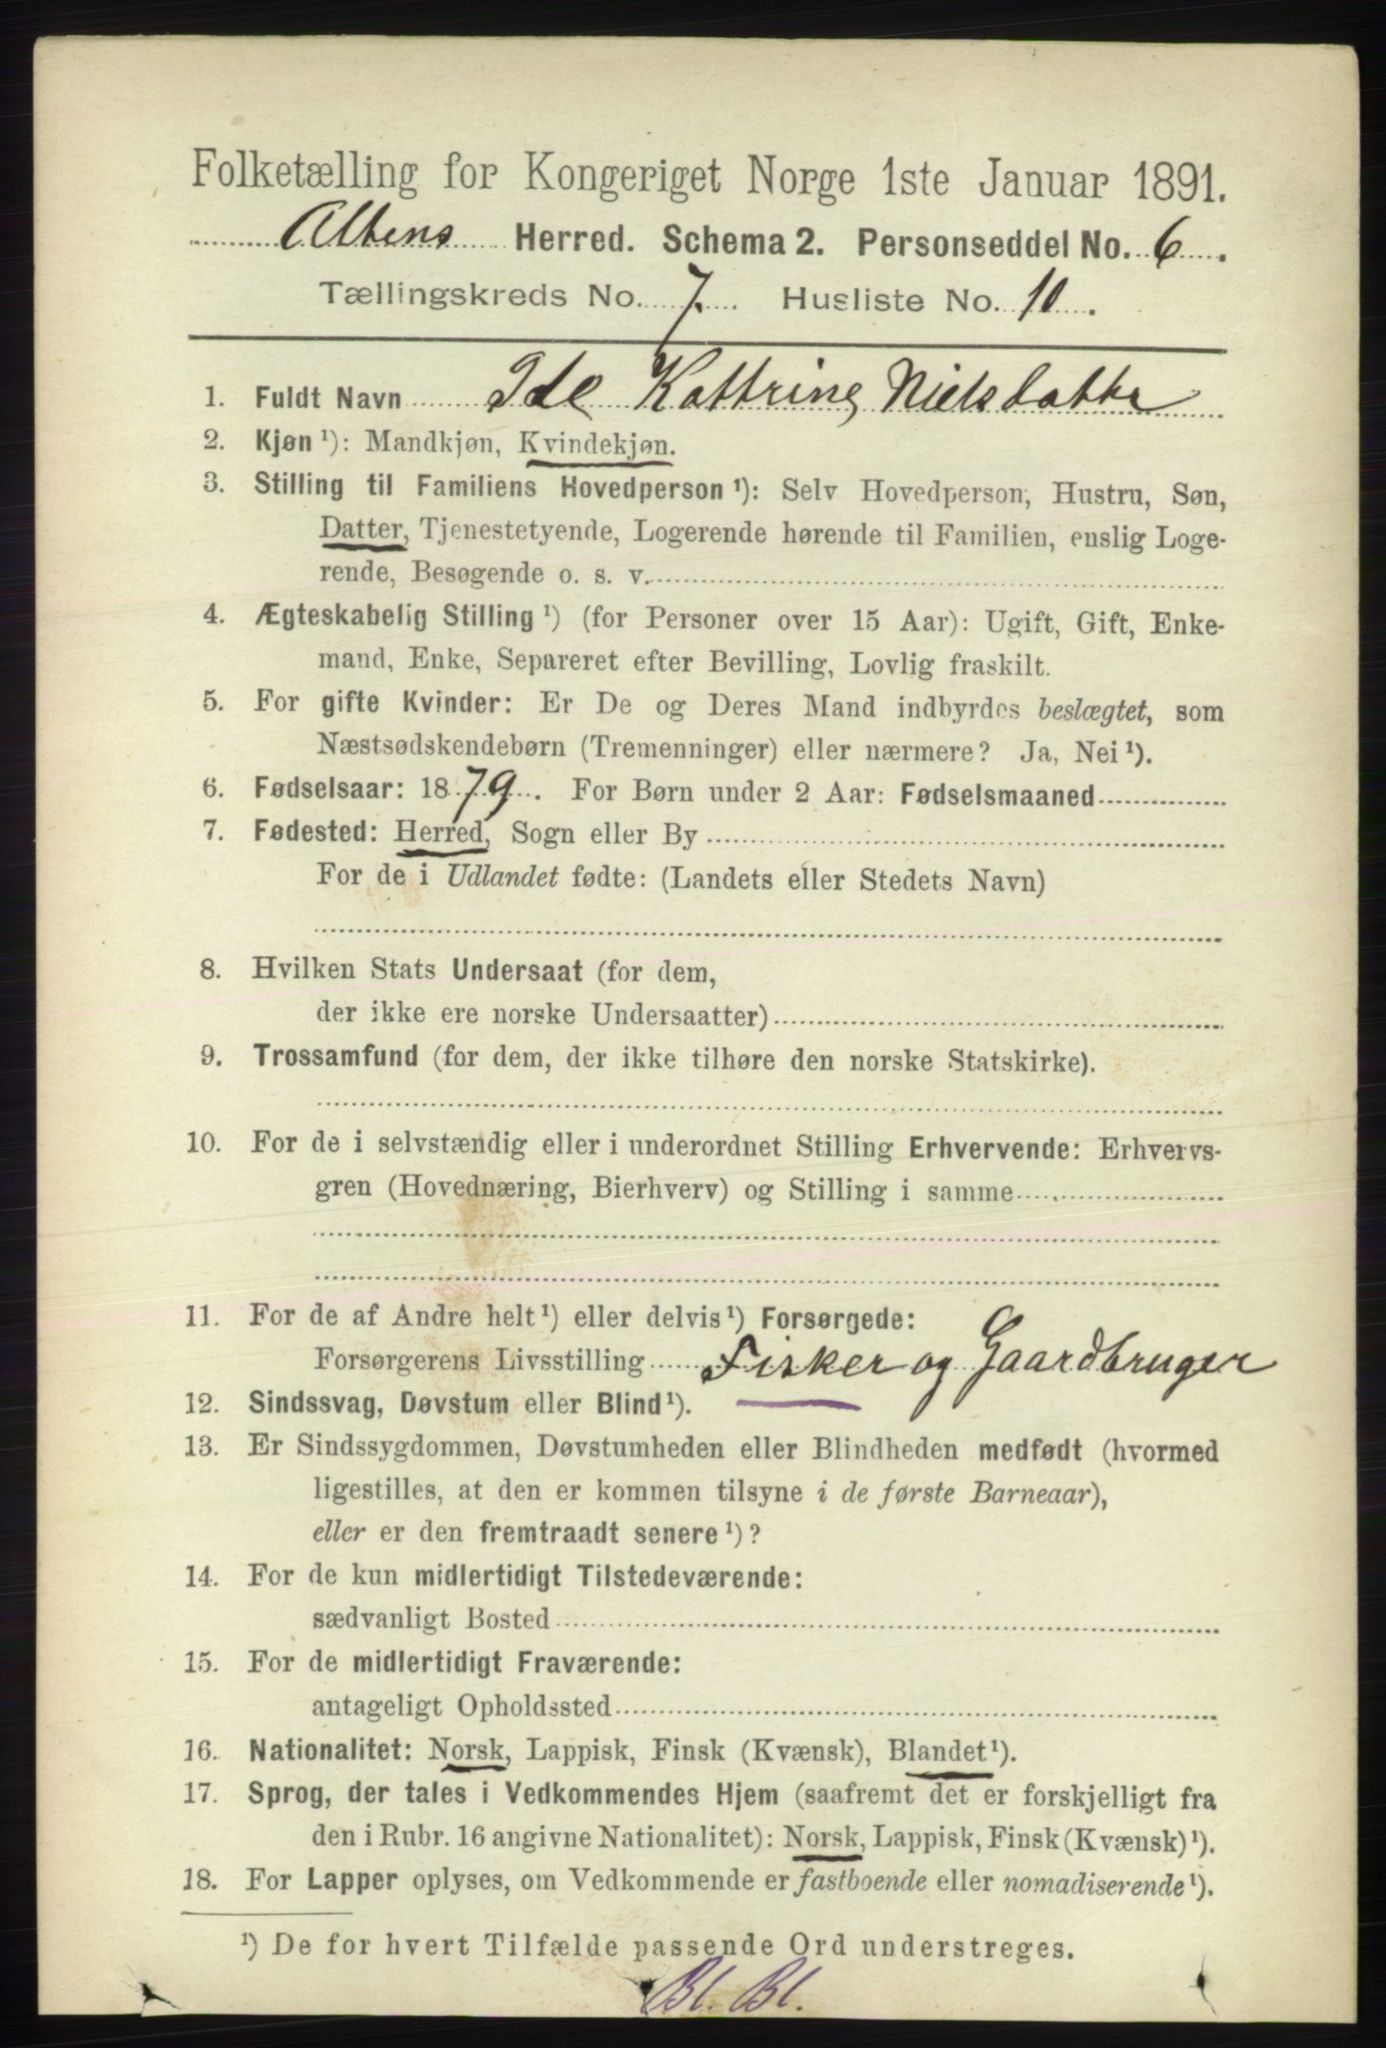 Folketælling for Kongeriget Norge 1ste Januar 1891.
Altens Herred. Schema 2. Personseddel No. 6.
Tællingskreds No. 7. Husliste No. 10.
1. Fuldt Navn Ide Kattrine Nielsdatter
2. Kjøn ¹): Mandkjøn, Kvindekjøn.
3. Stilling til Familiens Hovedperson ¹): Selv Hovedperson, Hustru, Søn,
Datter, Tjenestetyende, Logerende hørende til Familien, enslig Loge-
rende, Besøgende o. s. v.
4. Ægteskabelig Stilling ¹) (for Personer over 15 Aar): Ugift, Gift, Enke-
mand, Enke, Separeret efter Bevilling, Lovlig fraskilt.
5. For gifte Kvinder: Er De og Deres Mand indbyrdes beslægtet, som
Næstsødskendebørn (Tremenninger) eller nærmere? Ja, Nei ¹).
6. Fødselsaar: 1879. For Børn under 2 Aar: Fødselsmaaned
7. Fødested: Herred, Sogn eller By
For de i Udlandet fødte: (Landets eller Stedets Navn)
8. Hvilken Stats Undersaat (for dem,
der ikke ere norske Undersaatter)
9. Trossamfund (for dem, der ikke tilhøre den norske Statskirke).
10. For de i selvstændig eller i underordnet Stilling Erhvervende: Erhvervs-
gren (Hovednæring, Bierhverv) og Stilling i samme
11. For de af Andre helt ¹) eller delvis ¹) Forsørgede:
Forsørgerens Livsstilling Fisker og Gaardbruger
12. Sindssvag, Døvstum eller Blind ¹).
13. Er Sindssygdommen, Døvstumheden eller Blindheden medfødt (hvormed
ligestilles, at den er kommen tilsyne i de første Barneaar),
eller er den fremtraadt senere ¹)?
14. For de kun midlertidigt Tilstedeværende:
sædvanligt Bosted
15. For de midlertidigt Fraværende:
antageligt Opholdssted
16. Nationalitet: Norsk, Lappisk, Finsk (Kvænsk), Blandet ¹).
17. Sprog, der tales i Vedkommendes Hjem (saafremt det er forskjelligt fra
den i Rubr. 16 angivne Nationalitet): Norsk, Lappisk, Finsk (Kvænsk) ¹).
18. For Lapper oplyses, om Vedkommende er fastboende eller nomadiserende ¹).
¹) De for hvert Tilfælde passende Ord understreges.
Bl. Bl.